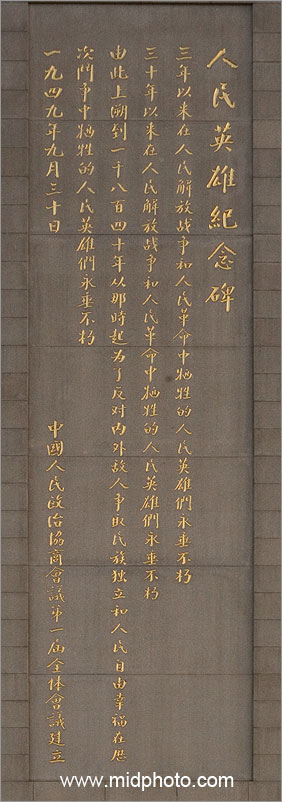 人民英雄纪念碑
三年以来在人民解放战争和人民革命中牺牲的人民英雄們永垂不朽
三十年以来在人民解放战争和人民革命中牺牲的人民英雄們永垂不朽
由此上溯到一千八百四十年从那時起为了反对内外敌人争取民族独立和人民自由幸福在历
次鬥争中牺牲的人民英雄們永垂不朽
一九四九年九月三十日
中國人民政治協商會議第一届全体會議建立
www.midphoto.com